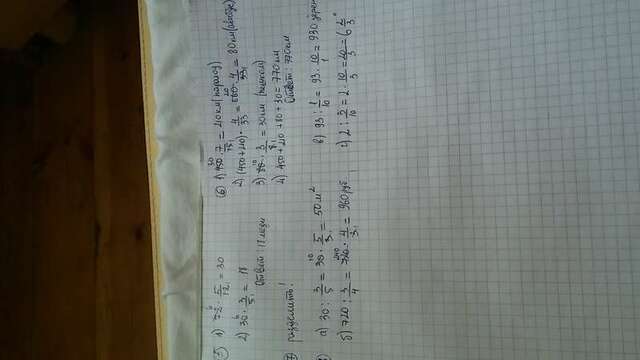 5) 1) 72 · 5/12 = 30
2) 30 · 3/5 = 18
Ответ: 18 люди
6) 1) 450 · 7/15 = 210 км (пароход)
2) (450 + 210) · 4/33 = 660 · 4/33 = 80 км (автобус)
3) 80 · 3/8 = 30 км (пешком)
4) 450 + 210 + 80 + 30 = 770 км
Ответ: 770 км
7 разделить!
а) 30 : 3/5 = 30 · 5/3 = 50 м²
б) 720 : 3/4 = 720 · 4/3 = 960 руб
в) 93 : 1/10 = 93 · 10/1 = 930 зерен
г) 2 : 3/10 = 2 · 10/3 = 20/3 = 6 2/3